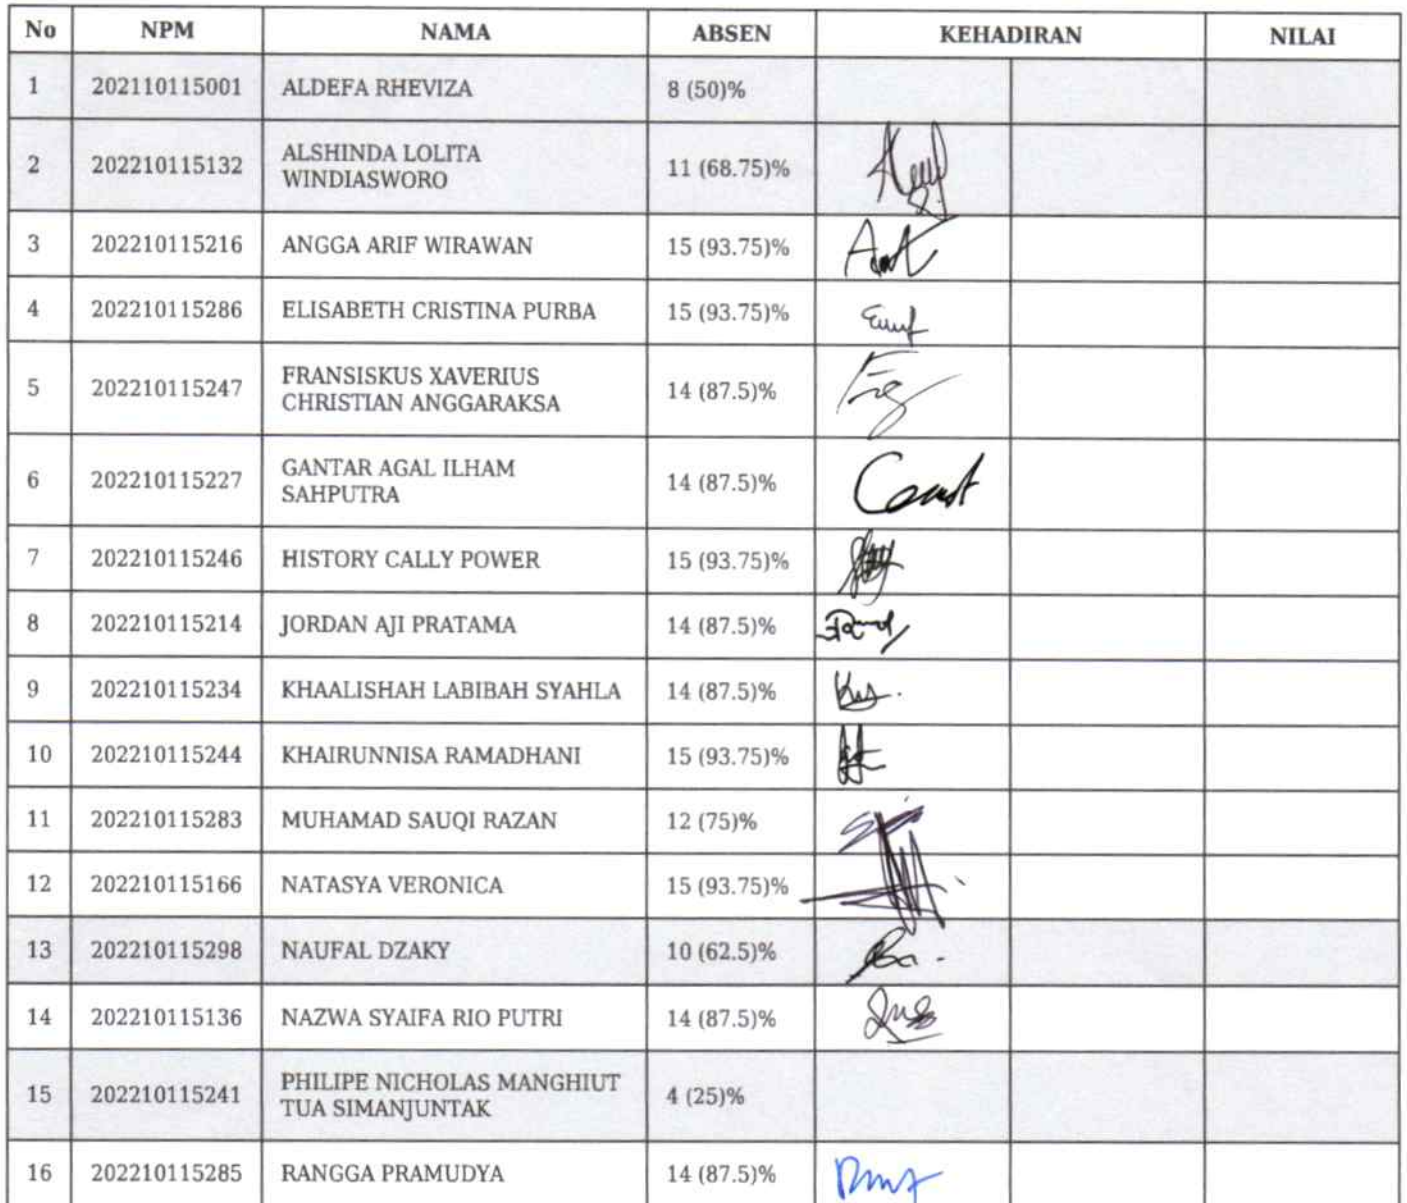 No NPM NAMA ABSEN KEHADIRAN NILAI
1 202110115001 ALDEFA RHEVIZA 8 (50)%
2 202210115132 ALSHINDA LOLITA
WINDIASWORO 11 (68.75)%
3 202210115216 ANGGA ARIF WIRAWAN 15 (93.75)%
4 202210115286 ELISABETH CRISTINA PURBA 15 (93.75)%
5 202210115247 FRANSISKUS XAVERIUS
CHRISTIAN ANGGARAKSA 14 (87.5)%
6 202210115227 GANTAR AGAL ILHAM
SAHPUTRA 14 (87.5)%
7 202210115246 HISTORY CALLY POWER 15 (93.75)%
8 202210115214 JORDAN AJI PRATAMA 14 (87.5)%
9 202210115234 KHAALISHAH LABIBAH SYAHLA 14 (87.5)%
10 202210115244 KHAIRUNNISA RAMADHANI 15 (93.75)%
11 202210115283 MUHAMAD SAUQI RAZAN 12 (75)%
12 202210115166 NATASYA VERONICA 15 (93.75)%
13 202210115298 NAUFAL DZAKY 10 (62.5)%
14 202210115136 NAZWA SYAIFA RIO PUTRI 14 (87.5)%
15 202210115241 PHILIPE NICHOLAS MANGHIUT
TUA SIMANJUNTAK 4 (25)%
16 202210115285 RANGGA PRAMUDYA 14 (87.5)%